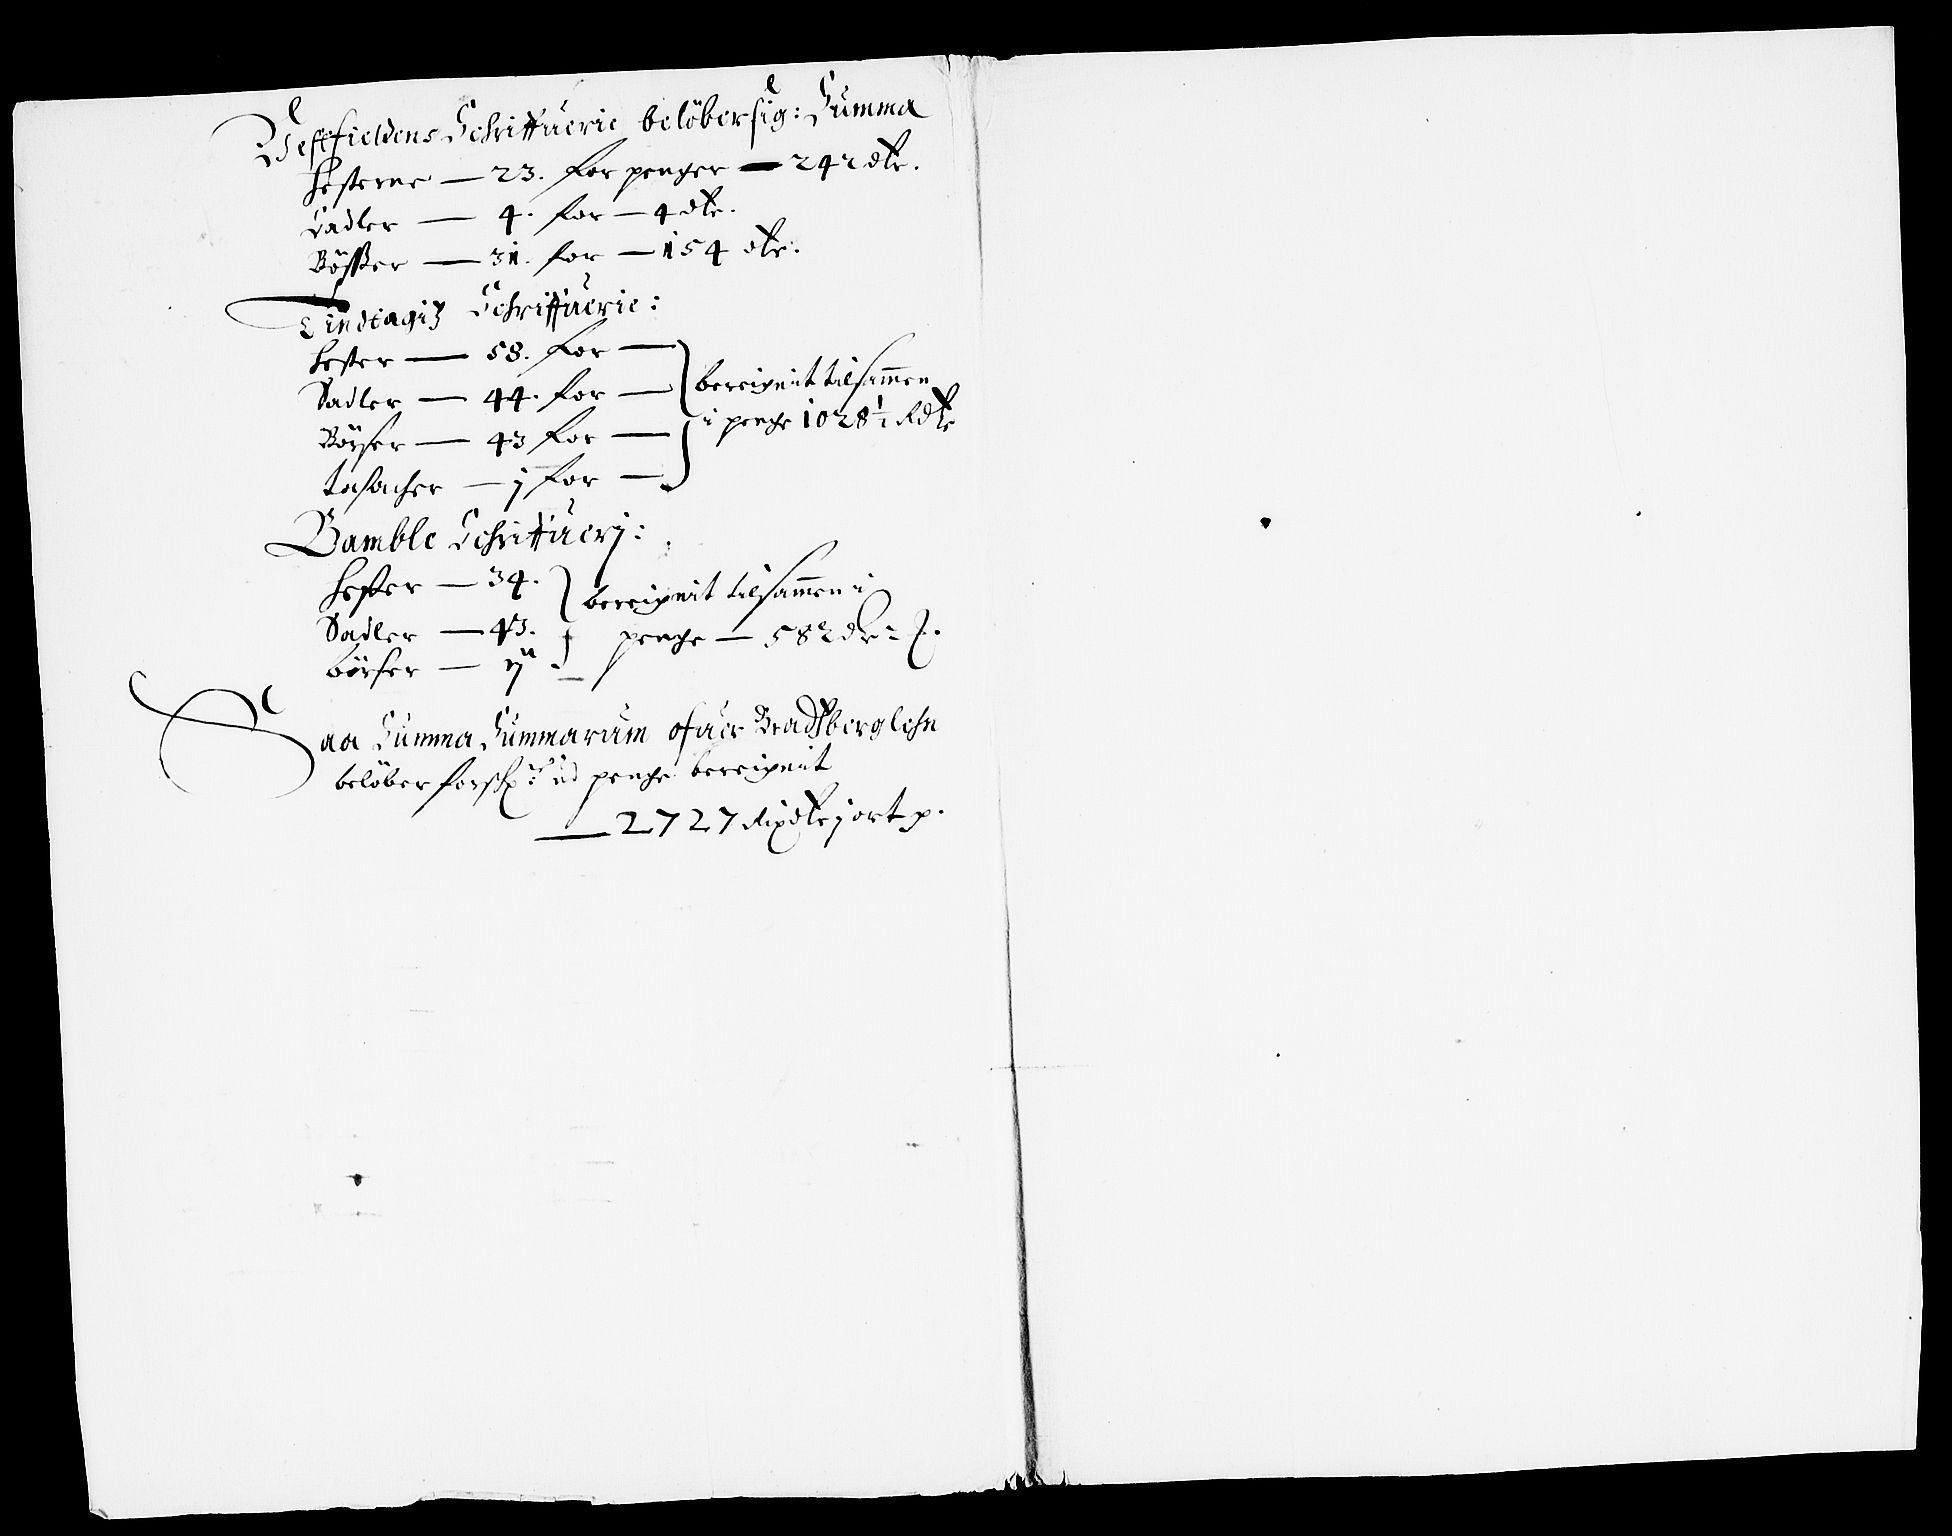 Vestfieldens Schriffuerie belöber sig: Summa
Hesterne — 23. for penger — 242 dlr.
Sadler — 4. for — 4 dlr.
Bösser — 31. for — 154 dlr.
Schriffuerie:
Hester — 58. for —
Sadler — 44. for —
Börser — 43 for —
— j for —
bereignit tilsammen
i penge 1028½ Rdlr
Bamble Schriffuerj:
Hester — 34.
Sadler — 43.
börser —
bereignit tilsammen i
penge — 582 dlr 2
Saa Summa Summarum ofuer Bradsberg lehn
belöber penge bereignit
— 2727 Rixdlr j ort